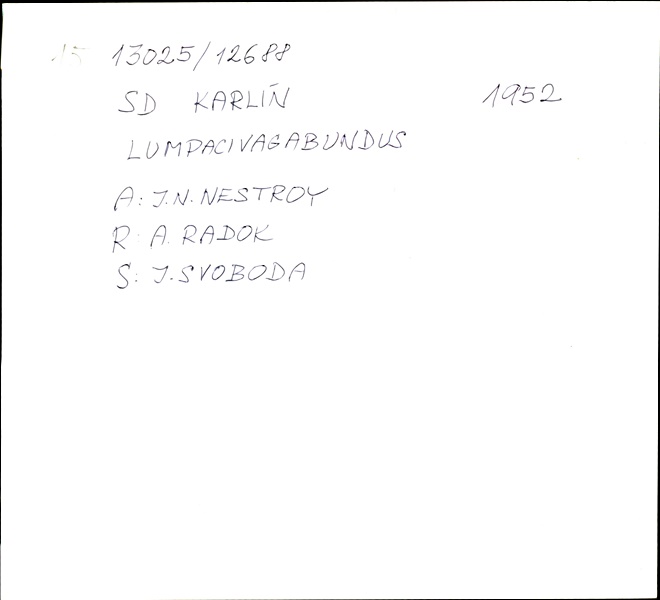 15 13025/12688
SD KARLÍN 1952
LUMPACIVAGABUNDUS
A: J.N. NESTROY
R A. RADOK
S: J. SVOBODA